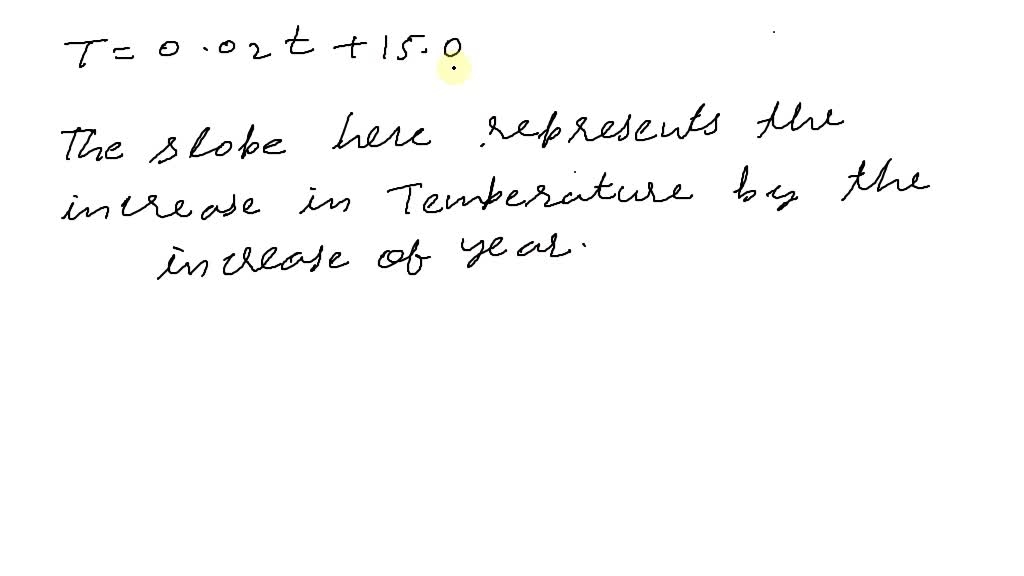 T = 0.02t + 15.0
The slope here represents the
increase in Temperature by the
increase of year.